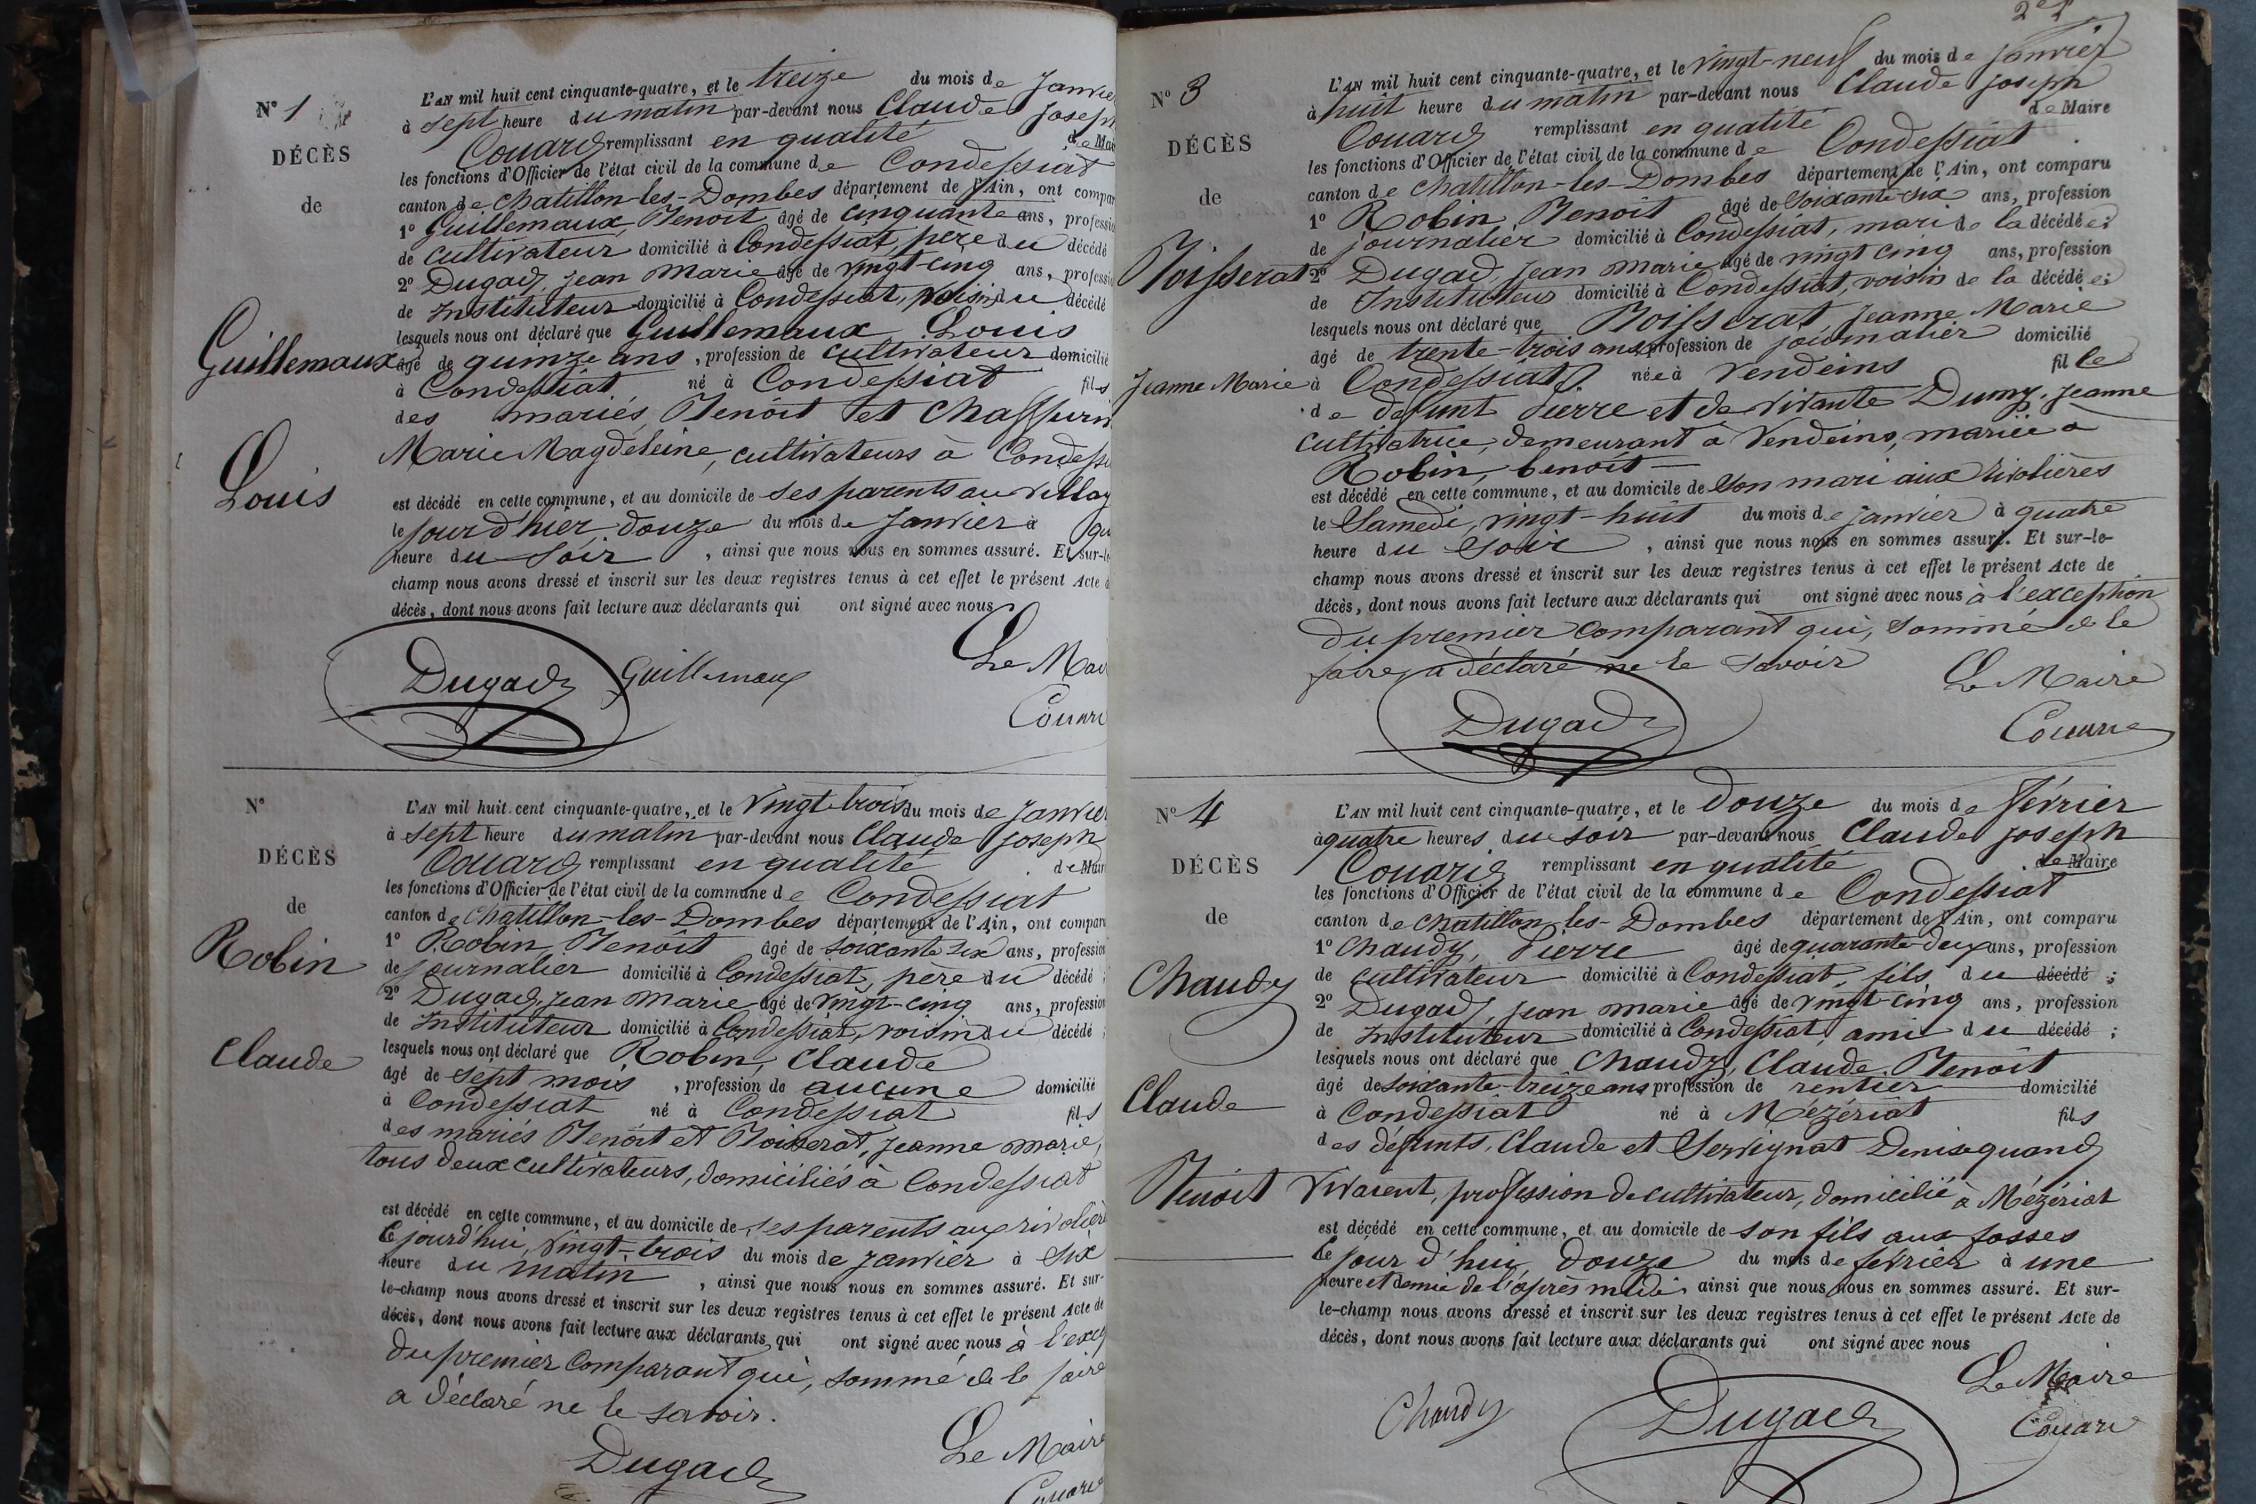 N° 1
DÉCÈS
de
Guillemaux
Louis
L'AN mil huit cent cinquante-quatre, et le treize du mois de Janvier
à sept heure du matin par-devant nous Claude Joseph
Couard remplissant en qualité de Mai
les fonctions d'Officier de l'état civil de la commune de Condessiat
canton de Chatillon-les-Dombes département de l'Ain, ont compar
1° Guillemaux, Benoit âgé de cinquante ans, professi
de cultivateur domicilié à Condessiat, père du décédé
2° Dugad, jean marie âgé de vingt-cinq ans, professi
de Instituteur domicilié à Condessiat, voisin du décédé
lesquels nous ont déclaré que Guillemaux Louis
âgé de quinze ans, profession de cultivateur domicilié
à Condessiat né à Condessiat fils
des mariés Benoit et Chassurin
Marie Magdeleine, cultivateurs à Condessi
est décédé en cette commune, et au domicile de ses parents au villag
le jour d'hier douze du mois de Janvier à qu
heure du soir, ainsi que nous nous en sommes assuré. Et sur-le-
champ nous avons dressé et inscrit sur les deux registres tenus à cet effet le présent Acte d
décès, dont nous avons fait lecture aux déclarants qui ont signé avec nous
Dugad Guillemaux Le Mair
Couard
N°
DÉCÈS
de
Robin
Claude
L'AN mil huit cent cinquante-quatre, et le vingt-trois du mois de Janvier
à sept heure du matin par-devant nous Claude Joseph
Couard remplissant en qualité de Mair
les fonctions d'Officier de l'état civil de la commune de Condessiat
canton de Chatillon-les-Dombes département de l'Ain, ont comparu
1° Robin Benoit âgé de soixante six ans, profession
de journalier domicilié à Condessiat, père du décédé ;
2° Dugad, jean marie âgé de vingt-cinq ans, profession
de Instituteur domicilié à Condessiat, voisin du décédé ;
lesquels nous ont déclaré que Robin, Claude
âgé de sept mois, profession de aucune domicilié
à Condessiat né à Condessiat fils
des mariés Benoit et Boisserat, jeanne marie,
tous deux cultivateurs, domiciliés à Condessiat
est décédé en cette commune, et au domicile de ses parents aux rivolière
le jourd'hui, vingt-trois du mois de janvier à six
heure du matin, ainsi que nous nous en sommes assuré. Et sur-
le-champ nous avons dressé et inscrit sur les deux registres tenus à cet effet le présent Acte de
décès, dont nous avons fait lecture aux déclarants qui ont signé avec nous à l'excep
du premier comparant qui, sommé de le faire
a déclaré ne le savoir.
Dugad Le Maire
Couard
N° 3
DÉCÈS
de
Boisserat
Jeanne Marie
L'AN mil huit cent cinquante-quatre, et le vingt-neuf du mois de janvier
à huit heure du matin par-devant nous Claude Joseph
Couard remplissant en qualité de Maire
les fonctions d'Officier de l'état civil de la commune de Condessiat
canton de Chatillon-les-Dombes département de l'Ain, ont comparu
1° Robin, Benoit âgé de soixante-six ans, profession
de journalier domicilié à Condessiat, mari de la décédée;
2° Dugad, jean marie âgé de vingt cinq ans, profession
de Instituteur domicilié à Condessiat, voisin de la décédée;
lesquels nous ont déclaré que Boisserat Jeanne Marie
âgé de trente-trois ans profession de journalier domicilié
à Condessiat née à Vendeins fille
de défunt Pierre et de vivante Dumy, jeanne
cultivatrice, demeurant à Vendeins, mariée à
Robin, benoit
est décédé en cette commune, et au domicile de son mari aux rivolières
le Samedi, vingt-huit du mois de janvier à quatre
heure du soir, ainsi que nous nous en sommes assuré. Et sur-le-
champ nous avons dressé et inscrit sur les deux registres tenus à cet effet le présent Acte de
décès, dont nous avons fait lecture aux déclarants qui ont signé avec nous à l'exception
du premier comparant qui, sommé de le
faire, a déclaré ne le savoir
Dugad Le Maire
Couard
N° 4
DÉCÈS
de
Chaudy
Claude
Benoit
L'AN mil huit cent cinquante-quatre, et le douze du mois de février
à quatre heures du soir par-devant nous Claude Joseph
Couard remplissant en qualité de Maire
les fonctions d'Officier de l'état civil de la commune de Condessiat
canton de Chatillon-les-Dombes département de l'Ain, ont comparu
1° Chaudy, Pierre âgé de quarante-deux ans, profession
de cultivateur domicilié à Condessiat, fils du décédé ;
2° Dugad, jean marie âgé de vingt-cinq ans, profession
de Instituteur domicilié à Condessiat, ami du décédé ;
lesquels nous ont déclaré que Chaudy, Claude Benoit
âgé de soixante-treize ans profession de rentier domicilié
à Condessiat né à Mézériat fils
des défunts, Claude et Servignat Denise quand
vivaient, profession de cultivateur, domicilié à Mézériat
est décédé en cette commune, et au domicile de son fils aux fosses
le jour d'hui douze du mois de février à une
heure et demie de l'après midi, ainsi que nous nous en sommes assuré. Et sur-
le-champ nous avons dressé et inscrit sur les deux registres tenus à cet effet le présent Acte de
décès, dont nous avons fait lecture aux déclarants qui ont signé avec nous
Chaudy Dugad Le Maire
Couard